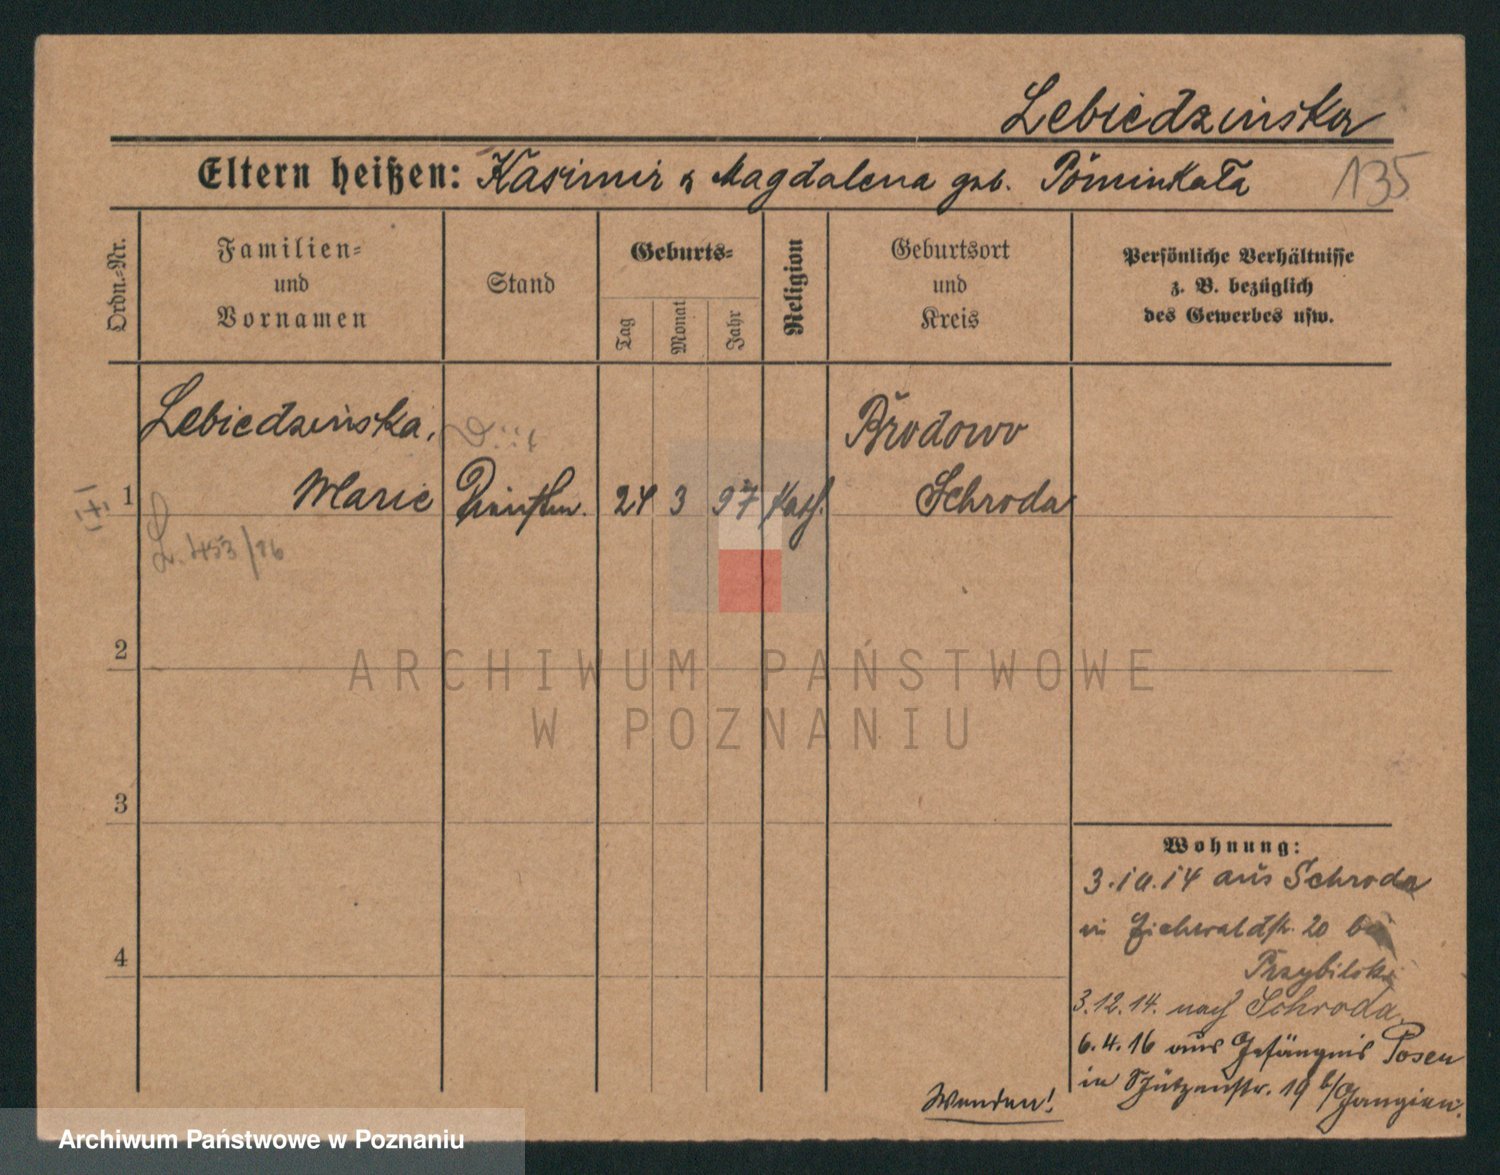 Lebiedzińska
Eltern heißen: Kasimir & Magdalena geb. Pominkała
135
Ordn.-Nr.
Familien-
und
Vornamen
Stand
Geburts-
Tag
Monat
Jahr
Religion
Geburtsort
und
Kreis
Persönliche Verhältnisse
z. B. bezüglich
des Gewerbes usw.
Lebiedzińska,
Brodowo
1
Marie
24 3 97 kath.
Schroda
L. 453/16
2
ARCHIWUM PAŃSTWOWE
W POZNANIU
3
Wohnung:
3.10.14 aus Schroda
in Eichwaldstr. 20 bei
4
3.12.14. nach Schroda.
6.4.16 aus Gefängnis Posen
in Schützenstr. 19 b/
Wenden!
Archiwum Państwowe w Poznaniu